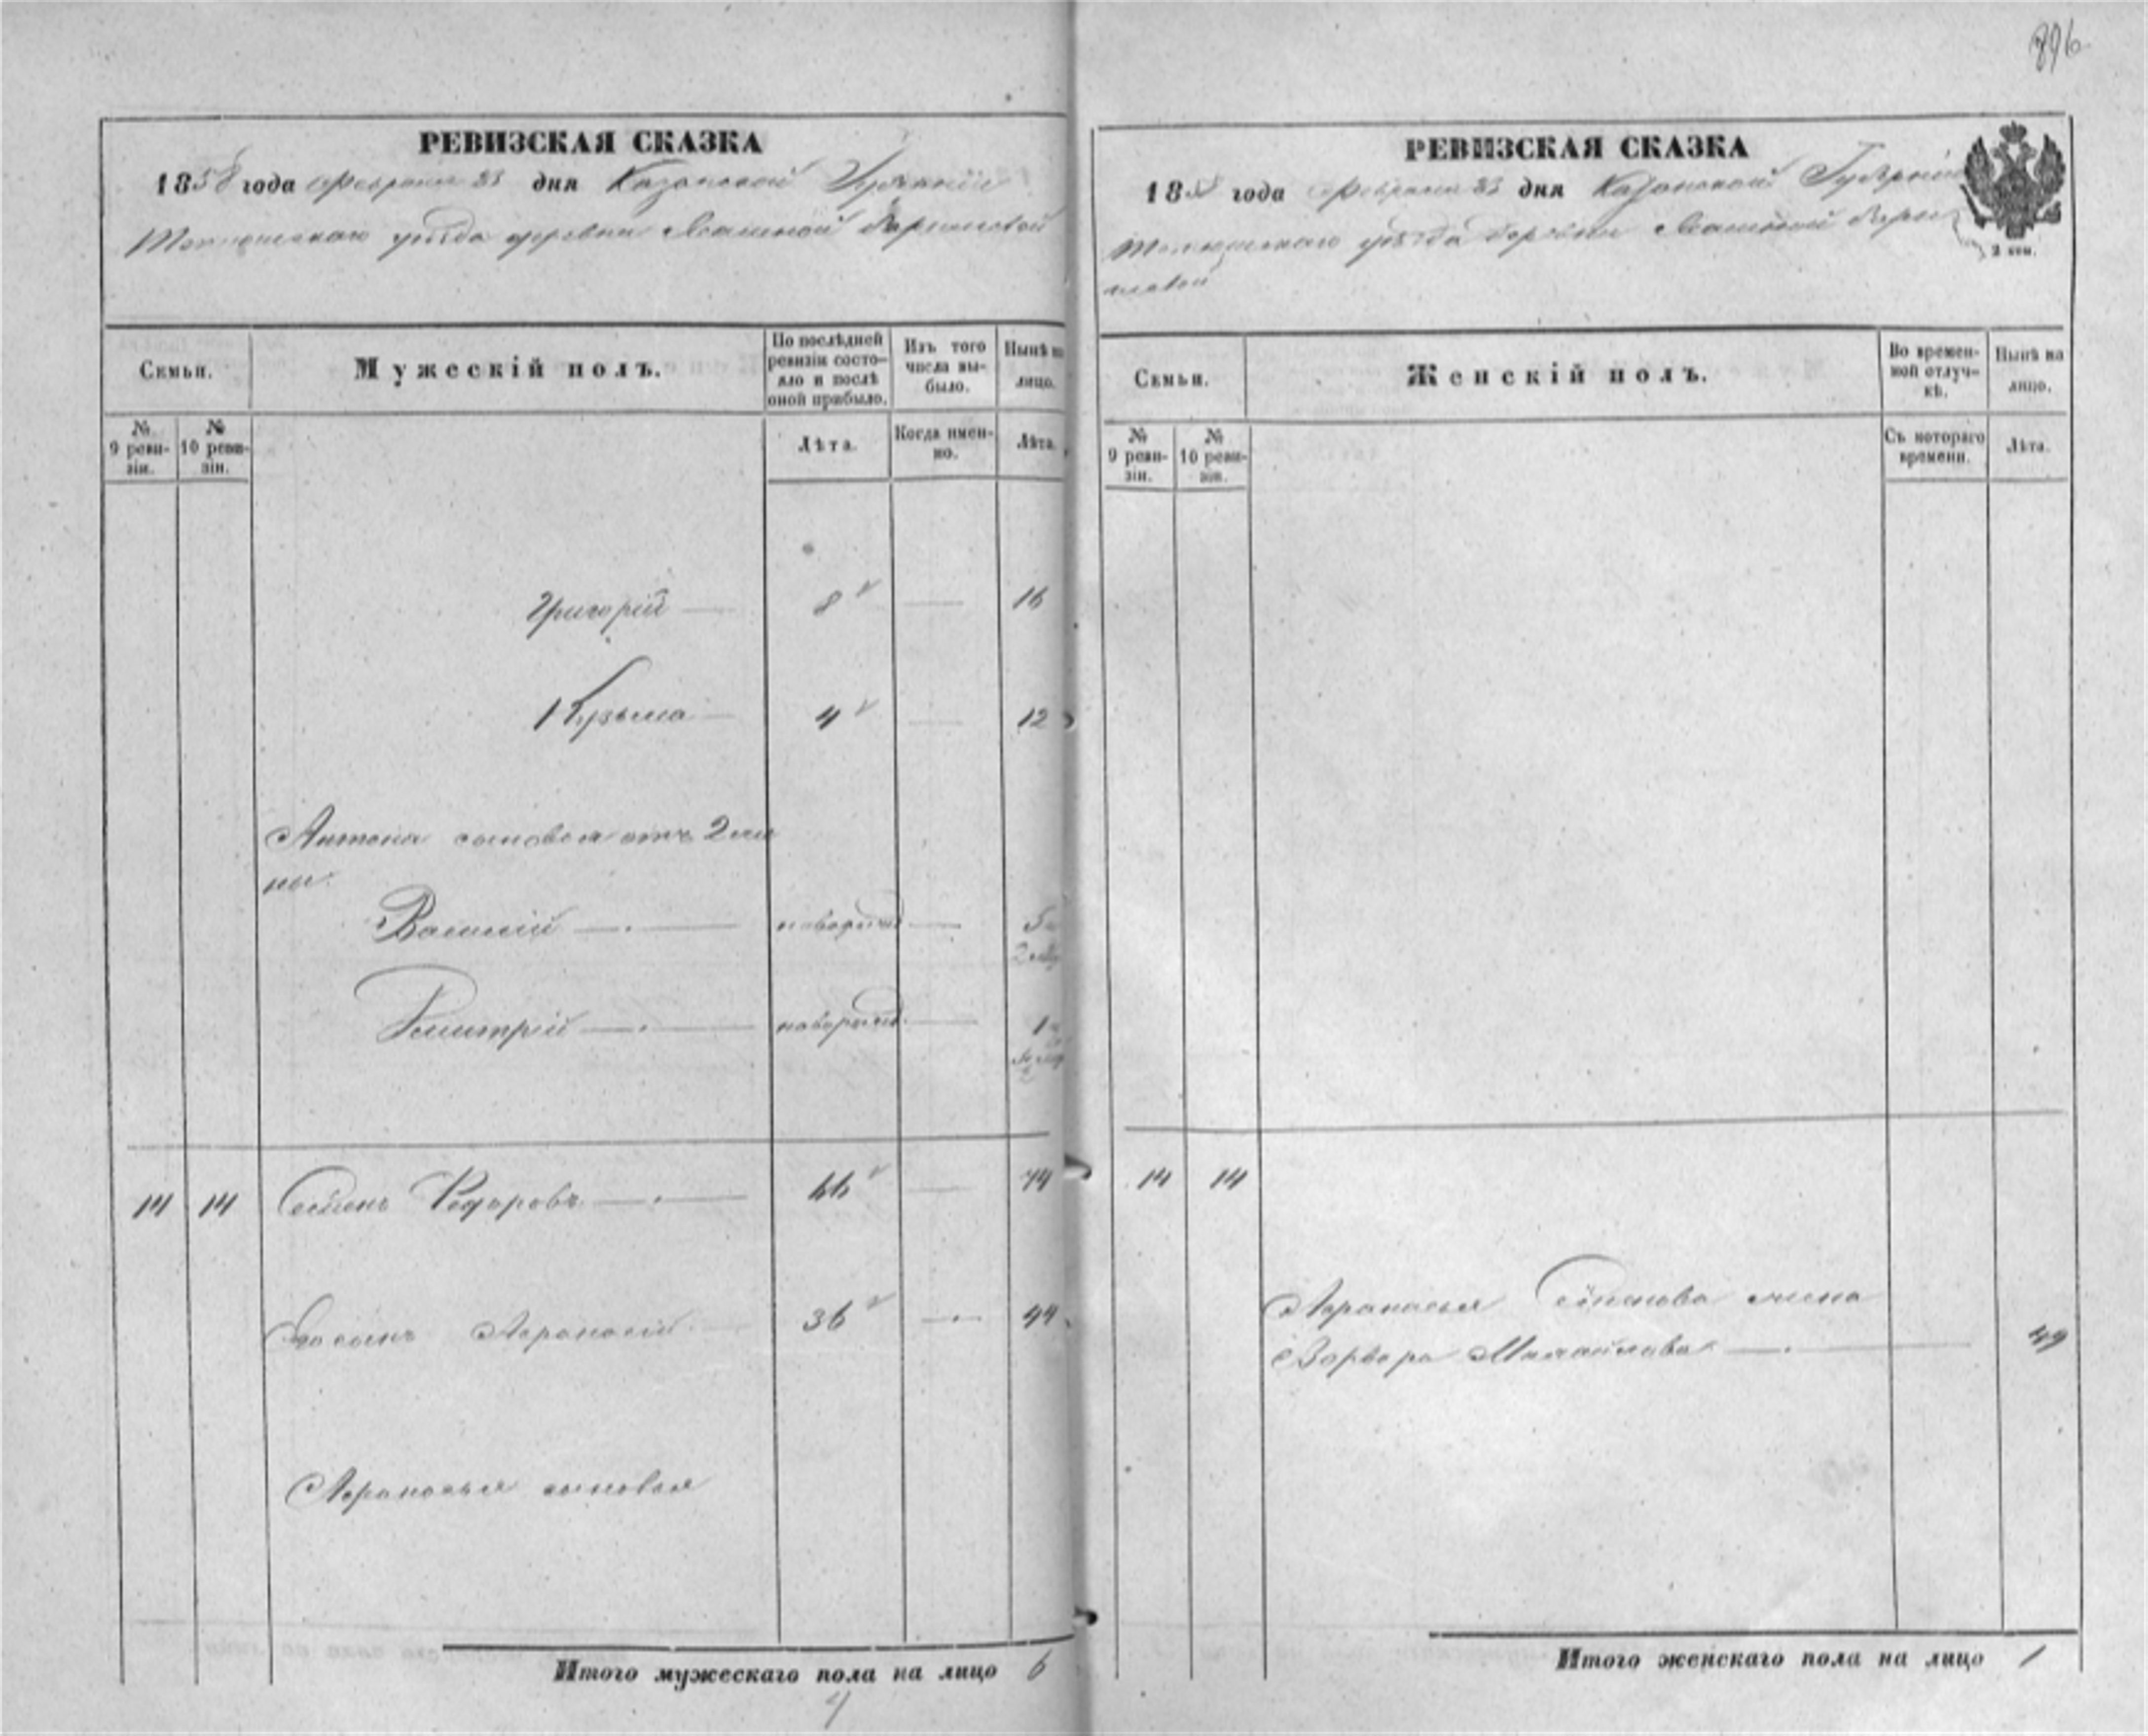 896
РЕВИЗСКАЯ СКАЗКА
1858 года Февраля дня Казанской Губернии
уѣзда деревни
Семьи.
Мужескій полъ.
По послѣдней ревизіи состояло и послѣ оной прибыло.
Изъ того числа выбыло.
Нынѣ на лицо.
№ 9 ревизіи.
№ 10 ревизіи.
Лѣта.
Когда именно.
Лѣта.
Григорій 8 16
Кузьма 4 12
Антона сыновья отъ 2 же
ны
Василій новорожд 5
Дмитрій новорожд. 1
14 14 Семенъ Федоровъ 66 74
Его сынъ Афонасій 36 44
Афонасья сыновья
Итого мужескаго пола на лицо 6
РЕВИЗСКАЯ СКАЗКА
185 года Февраля дня Казанской Губерніи
уѣзда деревни
2 коп.
Семьи.
Женскій полъ.
Во временной отлучкѣ.
Нынѣ на лицо.
№ 9 ревизіи.
№ 10 ревизіи.
Съ котораго времени.
Лѣта.
14 14
Афонасья Семенова жена
Варвара Михайлова 49
Итого женскаго пола на лицо 1